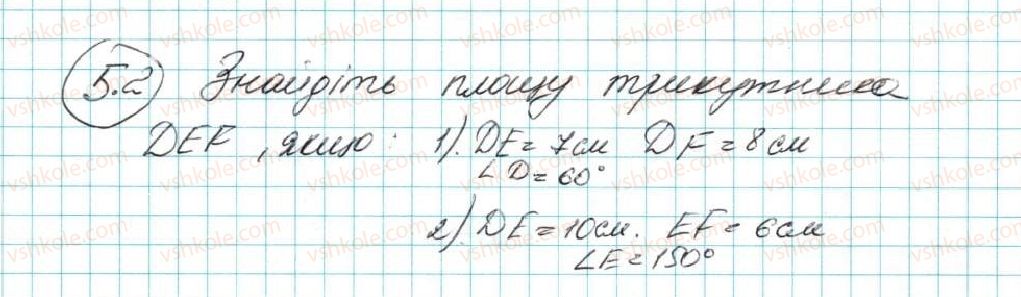 5.2 Знайдіть площу трикутника
DEF, якщо: 1). DE = 7см DF = 8см
∠D = 60°
2). DE = 10см. EF = 6см
∠E = 150°